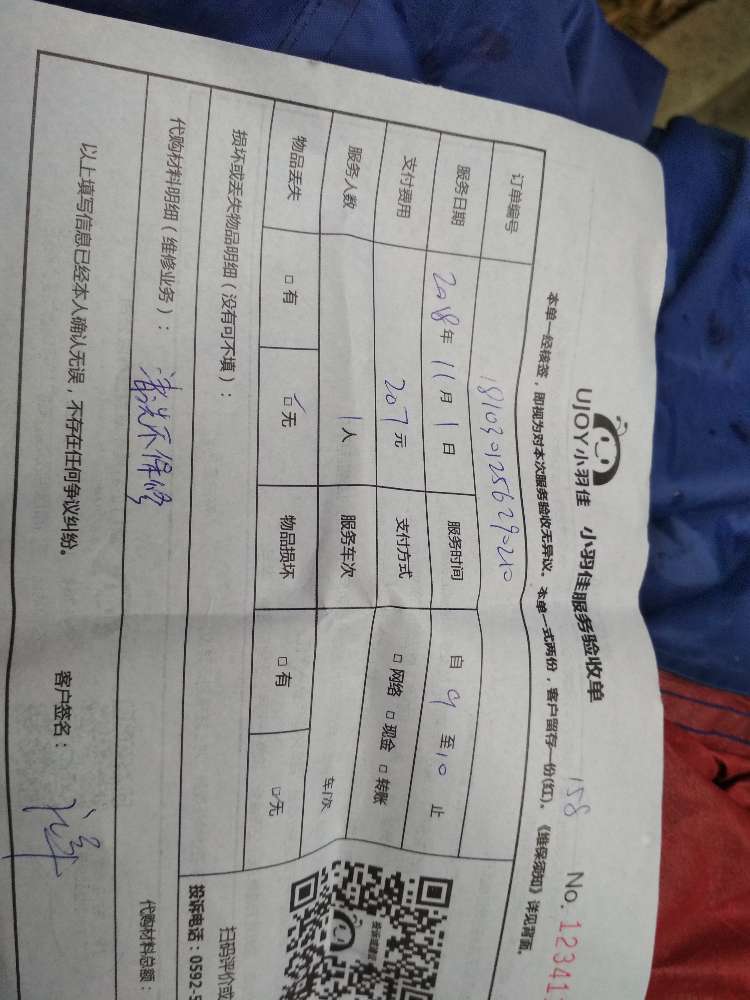 UJOY小羽佳 小羽佳服务验收单
158
No. 12341
本单一经核签，即视为对本次服务验收无异议。本单一式两份，客户留存一份(红)。《维保须知》详见背面。
订单编号 18103012562920210
服务日期 2018年 11月 1日 服务时间 自 9 至 10 止
支付费用 207元 支付方式 □ 网络 □ 现金 □ 转账
服务人数 1人 服务车次 车/次
物品丢失 □ 有 ☑ 无 物品损坏 □ 有 ☑ 无
损坏或丢失物品明细（没有可不填）：
扫码评价或
投诉电话：0592-5
代购材料明细（维修业务）： 清洗不保修
代购材料总额：
以上填写信息已经本人确认无误，不存在任何争议纠纷。 客户签名：